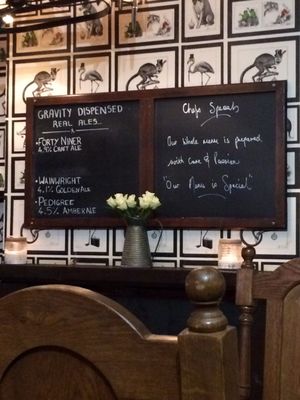 GRAVITY DISPENSED
REAL ALES
• FORTY NINER
4.9% CRAFT ALE
• WAINWRIGHT
4.1% GOLDEN ALE
• PEDIGREE
4.5% AMBER ALE
Chefs Specials
Our whole menu is prepared
with Care & Passion
"Our Menu is Special"